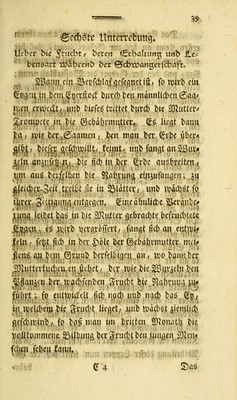 39
Sechste Unterredung.
Ueber die Frucht, deren Erhaltung und Le-
bensart während der Schwangerschaft.
Wann ein Beyschlaf gesegnet ist, so wird ein
Eygen in dem Eyerstock durch den männlichen Saa-
men erweckt, und dieses trittet durch die Mutter-
Trompete in die Gebährmutter. Es liegt dann
da, wie der Saamen, den man der Erde über-
gibt, dieser geschwillt, keimt, und fangt an Wur-
zeln anzusetzen, die sich in der Erde ausbreiten,
um aus derselben die Nahrung einzusaugen; zu
gleicher Zeit treibt sie in Blätter, und wächst so
ihrer Zeitigung entgegen. Eine ähnliche Verände-
rung leidet das in die Mutter gebrachte befruchtete
Eygen; es wird vergrössert, fangt sich an entwi-
keln, setzt sich in der Höle der Gebährmutter mei-
stens an dem Grund derselbigen an, wo dann der
Mutterkuchen entstehet, der wie die Wurzeln den
Pflanzen der wachsenden Frucht die Nahrung zu-
führt; so entwickelt sich nach und nach das Ey,
in welchem die Frucht lieget, und wächst ziemlich
geschwind, so daß man im dritten Monath die
vollkommene Bildung der Frucht den jungen Men-
schen sehen kann.
C 4 Das